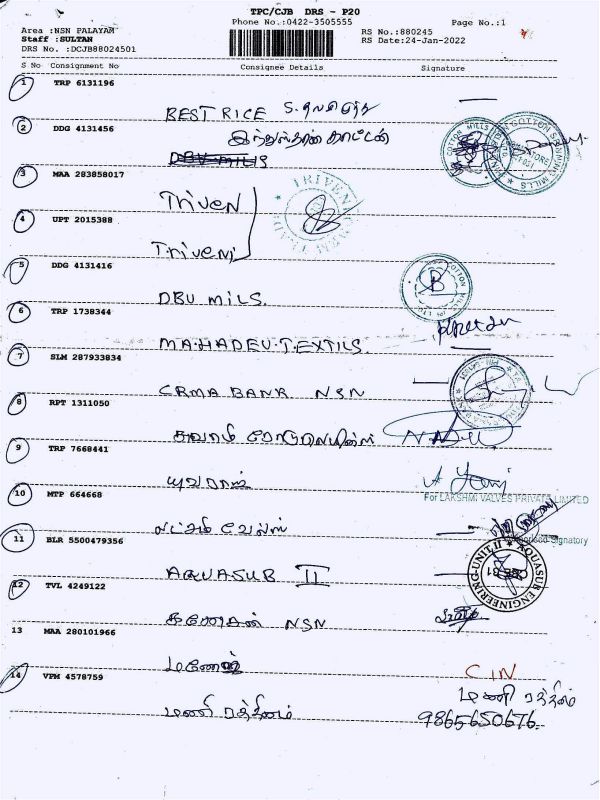 TPC/CJB DRS - P20
Phone No.:0422-3505555
Page No.:1
Area :NSN PALAYAM
Staff :SULTAN
DRS No. :DCJB88024501
RS No.:880245
RS Date:24-Jan-2022
S No Consignment No Consignee Details Signature
1 TRP 6131196
BEST RICE
2 DDG 4131456
இந்துஸ்தான் காட்டன்
DBV MILLS
3 MAA 283858017
Triven
TRIVEN
4 UPT 2015388
Triveni
5 DDG 4131416
DBV MILS.
6 TRP 1738344
MAHADEV TEXTILS.
7 SLM 287933834
CRMA BANK NSN
8 RPT 1311050
சுவாமி
9 TRP 7668441
யுவராஜ்
10 MTP 664668
For LAKSHMI VALVES PRIVATE LIMITED
லட்சுமி வேல்ஸ்
Authorised Signatory
11 BLR 5500479356
AQUASUB II
AQUASUB ENGINEERING-UNIT II
12 TVL 4249122
கணேசன் NSN
13 MAA 280101966
CIN
14 VPM 4578759
மணி ரத்தினம்
மணி ரத்தினம்
9865650676